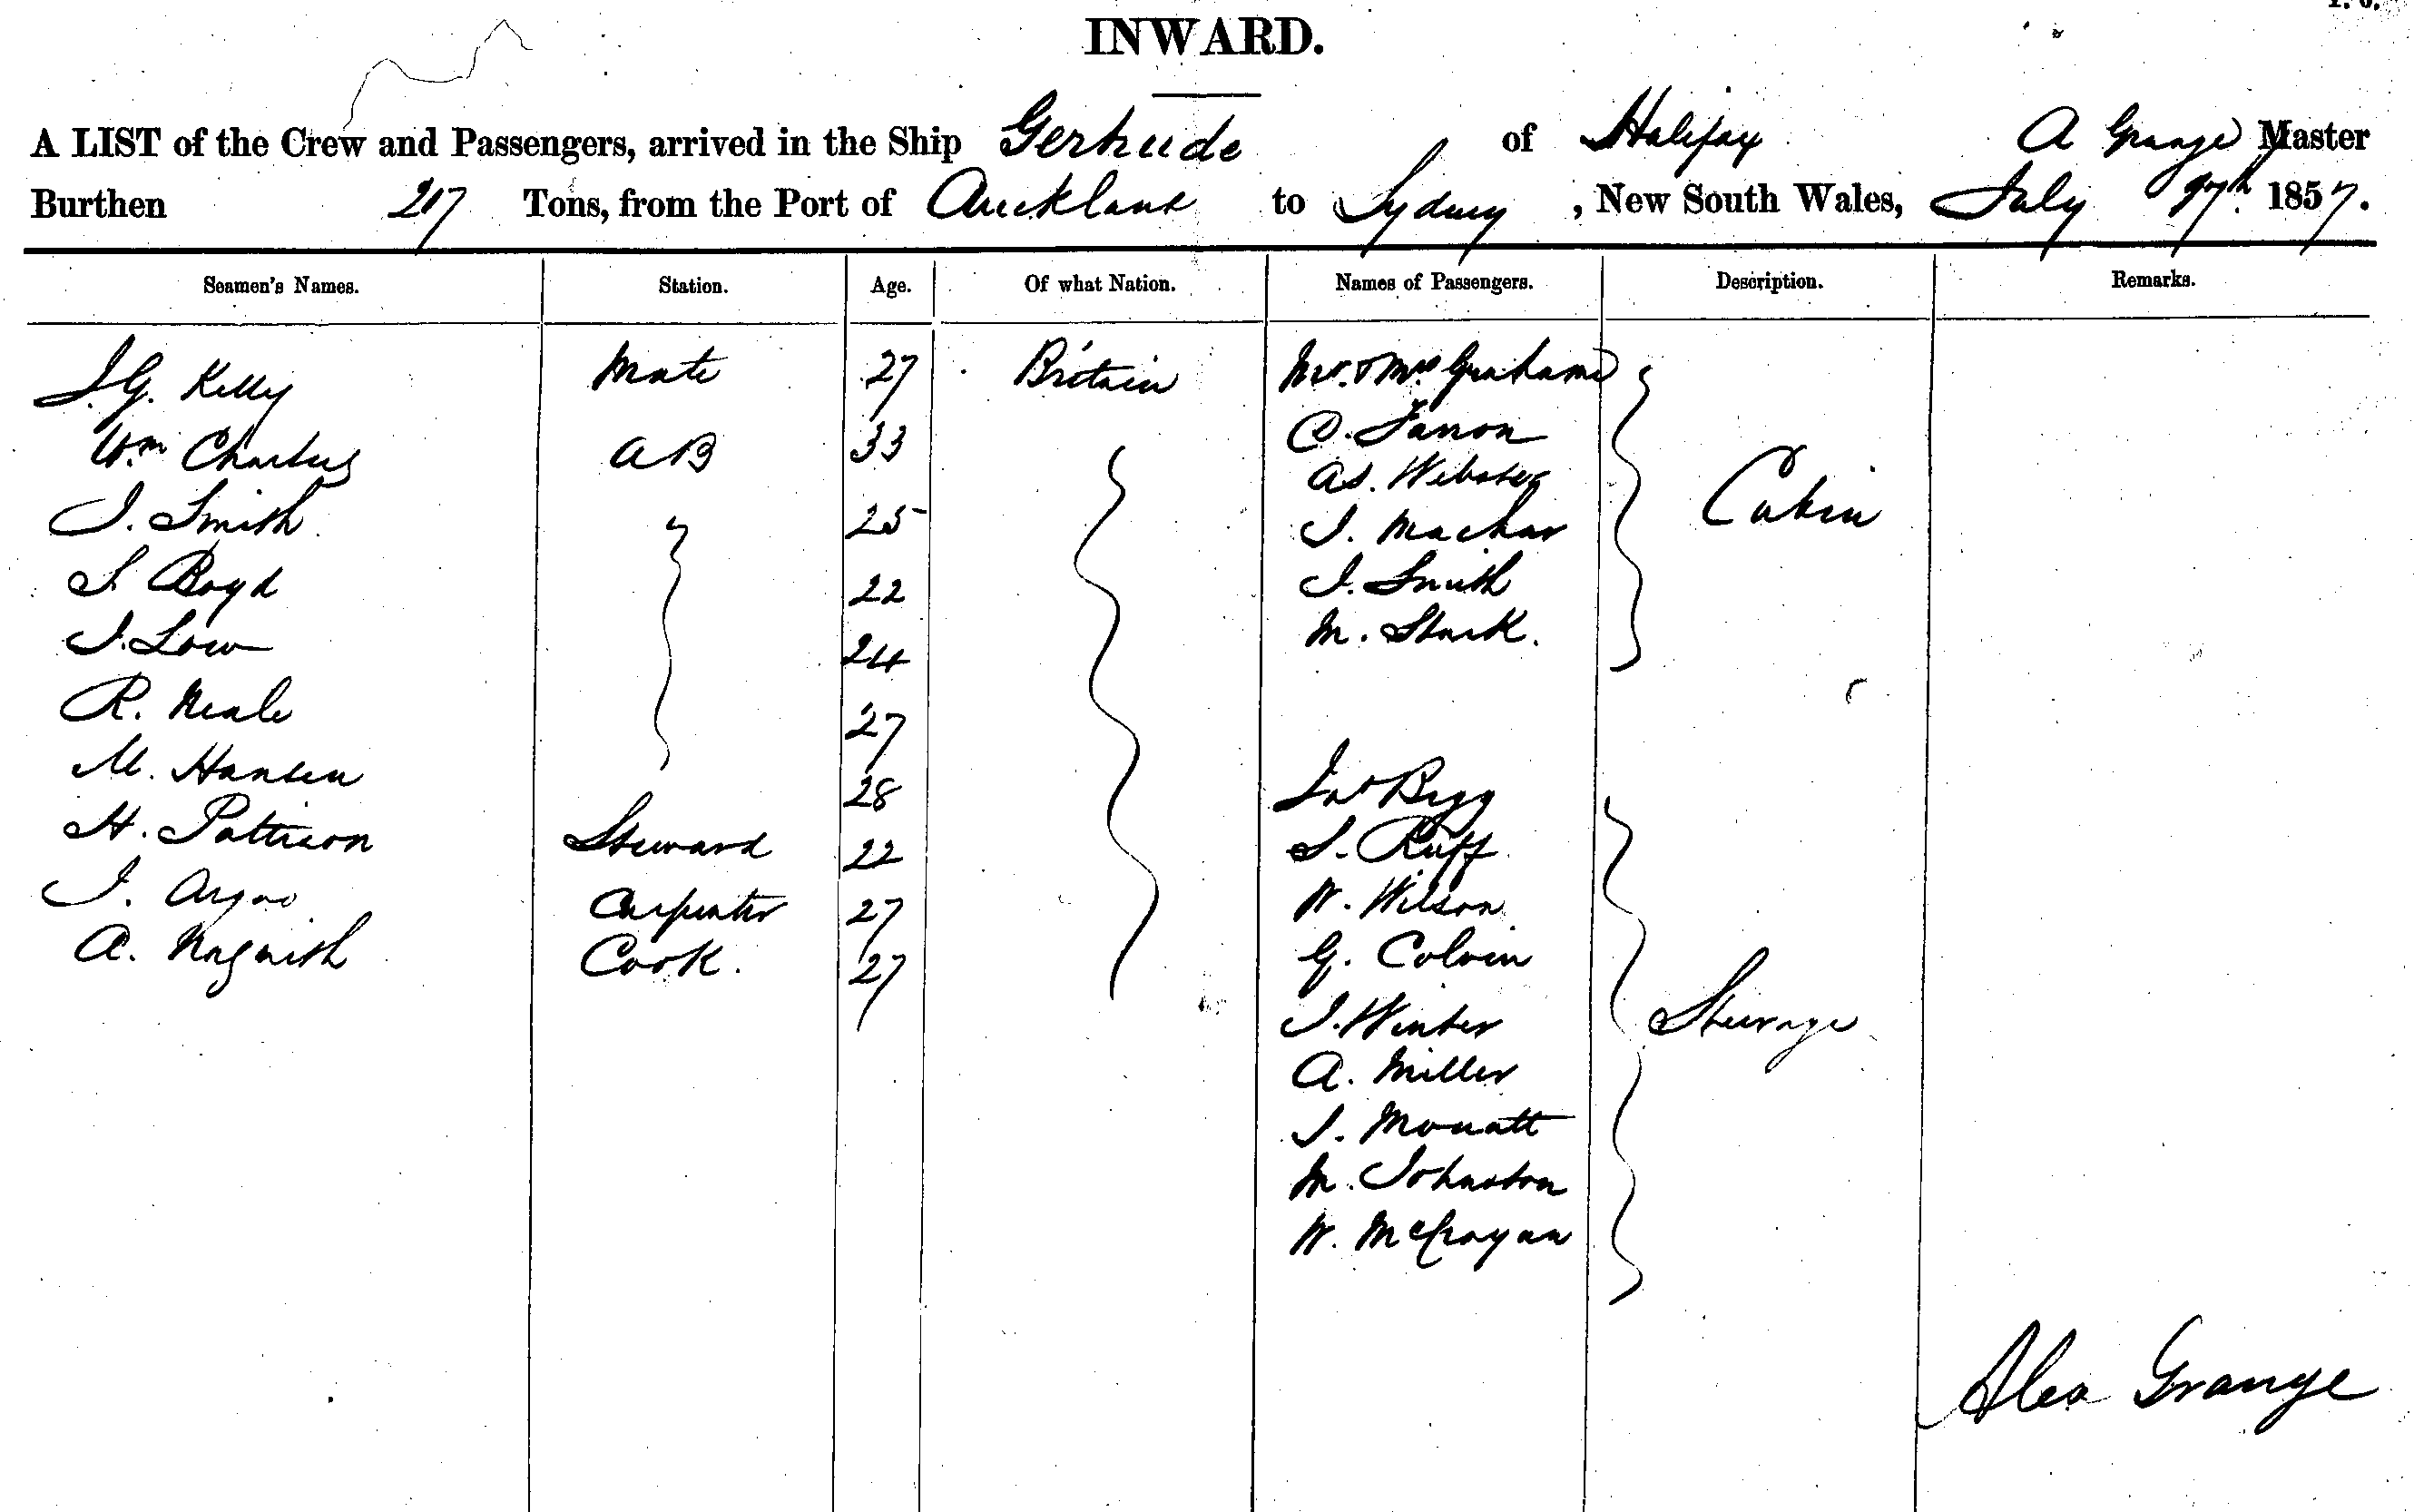 INWARD.
A LIST of the Crew and Passengers, arrived in the Ship Gertrude of Halifax A Grange Master
Burthen 217 Tons, from the Port of Auckland to Sydney, New South Wales, July 1857.
Seamen's Names. Station. Age. Of what Nation. Names of Passengers. Description. Remarks.
J.G. Kelly Mate 27 Britain Mr. & Mrs Grahame
Wm Charters A B 33 C.
J. Smith 25 As. Webster
S Boyd 22 J. Machar
J. Low 24 J. Smith
R. Neale 27 M. Stark.
Cabin
M. Hansen 28
H. Pattison Steward 22
J. Carpenter 27
A. Cook. 27
Jno Begg
S. Ruff
W. Wilson
G. Colvin
J. Winter
A. Miller
J. Mouatt
M. Johnston
W.
Steerage
Alex Grange